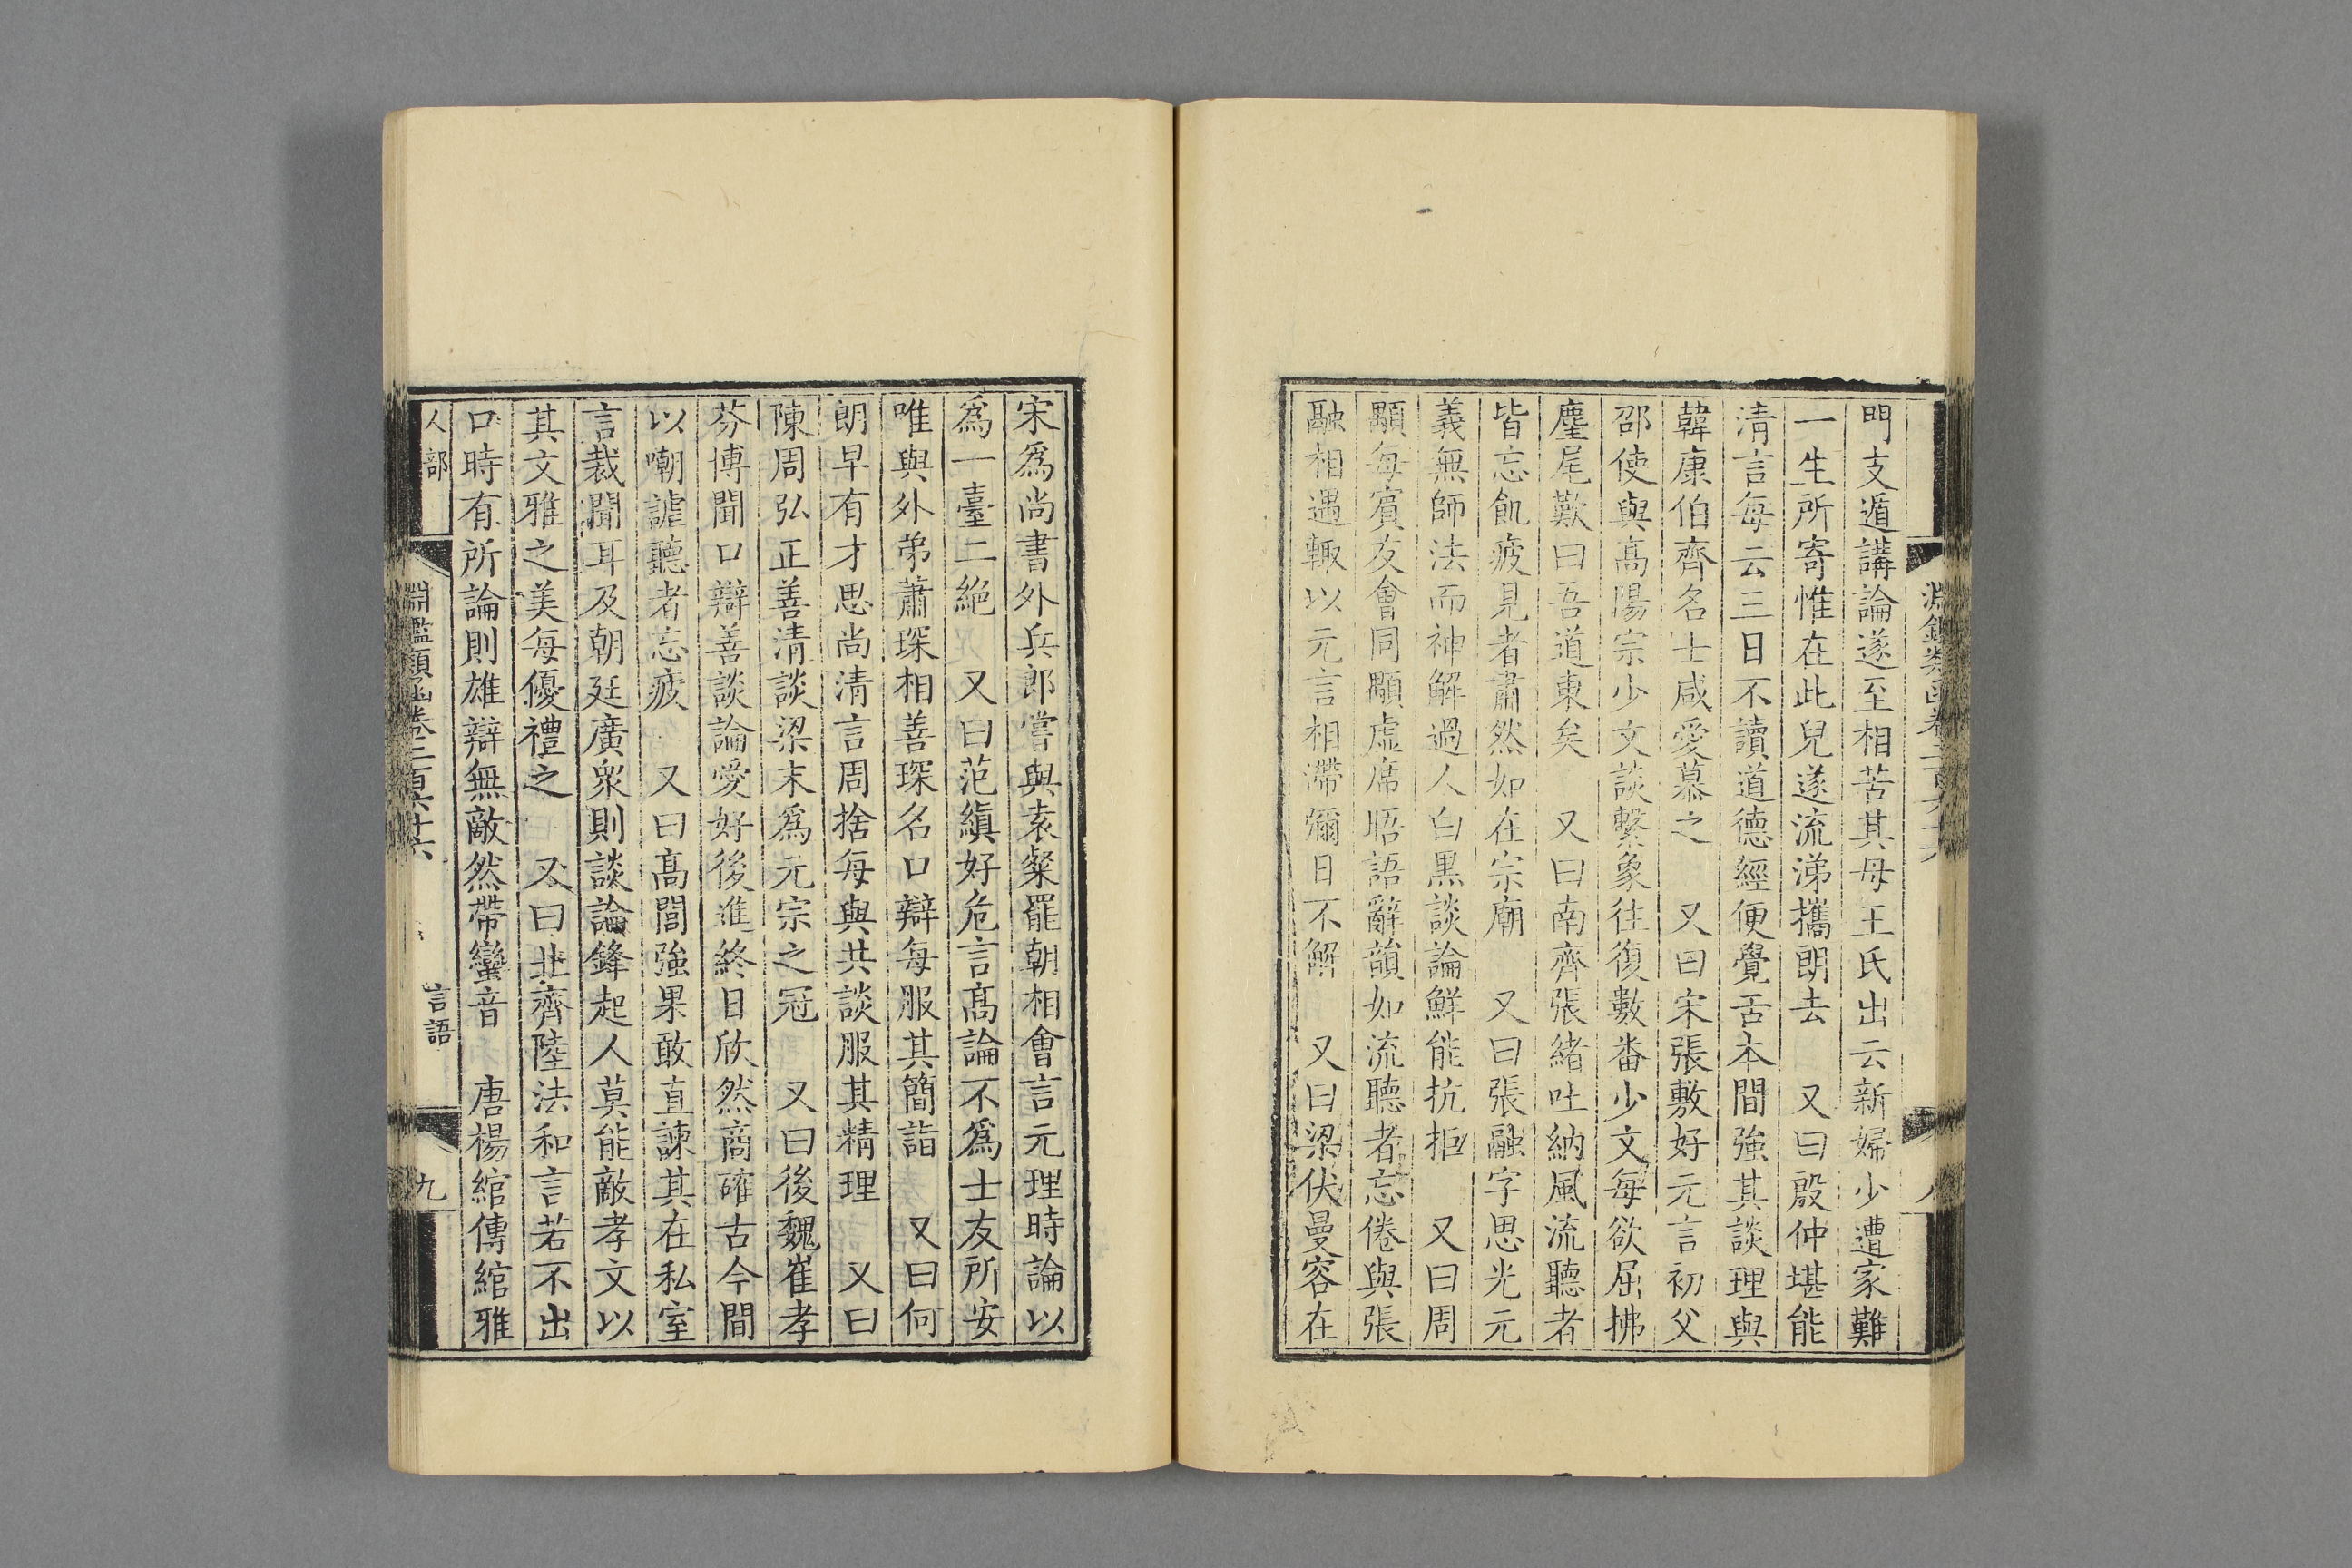 門支遁講論遂至相苦其母王氏出云新婦少遭家難
一生所寄惟在此兒遂流涕攜朗去　又曰殷仲堪能
清言每云三日不讀道德經便覺舌本間強其談理與
韓康伯齊名士咸愛慕之　又曰宋張敷好元言初父
邵使與高陽宗少文談繫象往復數番少文每欲屈拂
麈尾歎曰吾道東矣　又曰南齊張緒吐納風流聽者
皆忘飢疲見者肅然如在宗廟　又曰張融字思光元
義無師法而神解過人白黑談論鮮能抗拒　又曰周
顒每賓友會同顒虛席晤語辭韻如流聽者忘倦與張
融相遇輒以元言相滯彌日不解　又曰梁伏曼容在
宋爲尚書外兵郎嘗與袁粲罷朝相會言元理時論以
爲一臺二絕　又曰范縝好危言高論不爲士友所安
唯與外弟蕭琛相善琛名口辯每服其簡詣　又曰何
朗早有才思尚清言周捨每與共談服其精理　又曰
陳周弘正善清談梁末爲元宗之冠　又曰後魏崔孝
芬博聞口辯善談論愛好後進終日欣然商確古今間
以嘲謔聽者忘疲　又曰高閭強果敢直諫其在私室
言裁聞耳及朝廷廣衆則談論鋒起人莫能敵孝文以
其文雅之美每優禮之　又曰北齊陸法和言若不出
口時有所論則雄辯無敵然帶蠻音　唐楊綰傳綰雅
人部
淵鑑類函卷二百六十六
言語
九